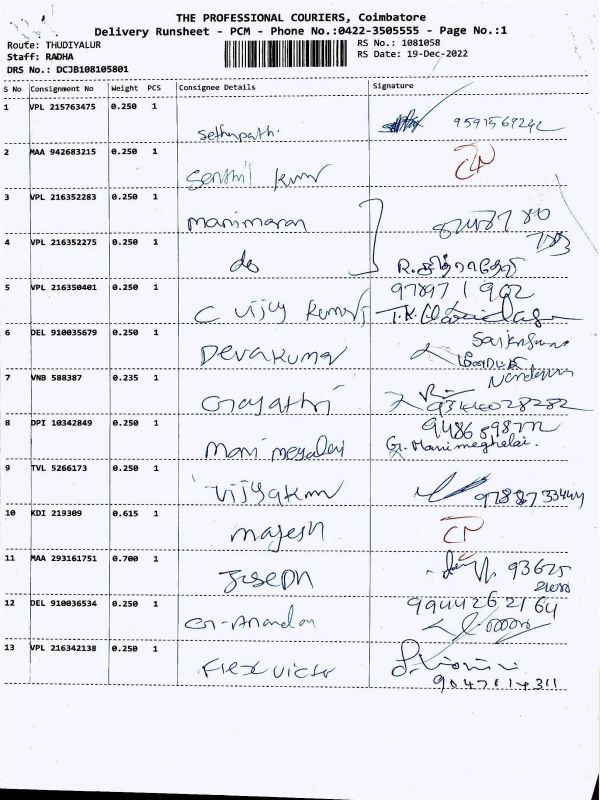 THE PROFESSIONAL COURIERS, Coimbatore
Delivery Runsheet - PCM - Phone No.:0422-3505555 - Page No.:1
Route: THUDIYALUR
Staff: RADHA
DRS No.: DCJB108105801
RS No.: 1081058
RS Date: 19-Dec-2022
S No Consignment No Weight PCS Consignee Details Signature
1 VPL 215763475 0.250 1
Sethupathi
2 MAA 942683215 0.250 1
Senthil kumar CN
3 VPL 216352283 0.250 1
Manimaran
4 VPL 216352275 0.250 1
do
5 VPL 216350401 0.250 1
C Vijay Kumar
6 DEL 910035679 0.250 1
Devakumar
7 VNB 588387 0.235 1
Gayathri 9344028282
8 DPI 10342849 0.250 1
Mani megalai G. Manimeghelai.
9 TVL 5266173 0.250 1
Vijyakumar
10 KDI 219309 0.615 1
majesh CN
11 MAA 293161751 0.700 1
Joseph 93625
12 DEL 910036534 0.250 1 9944262164
G-Anandan
13 VPL 216342138 0.250 1
Flex Victor
9047014311